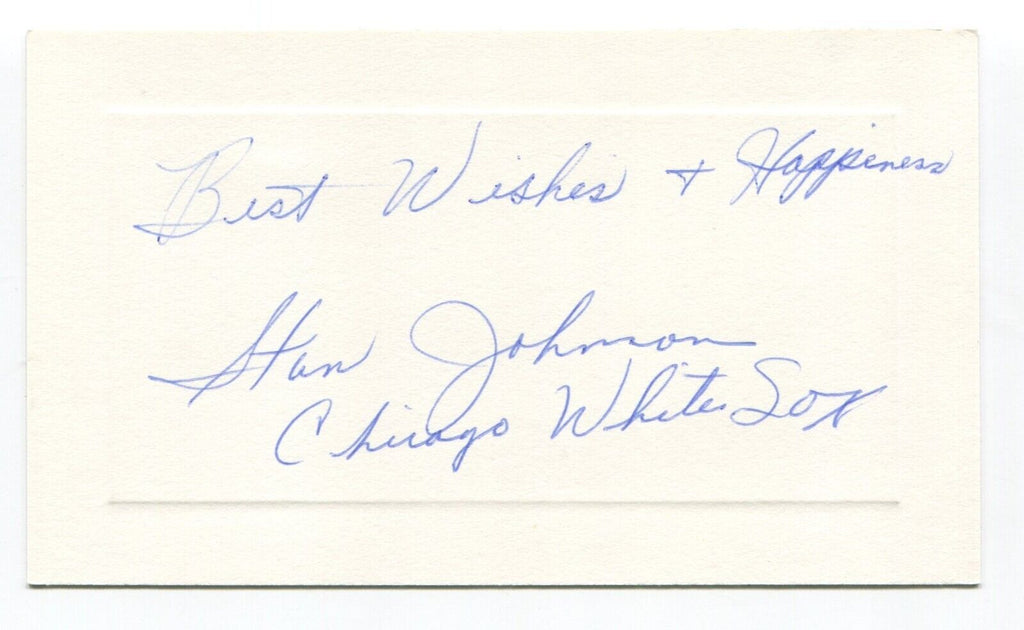 Best Wishes + Happiness
Stan Johnson
Chicago White Sox